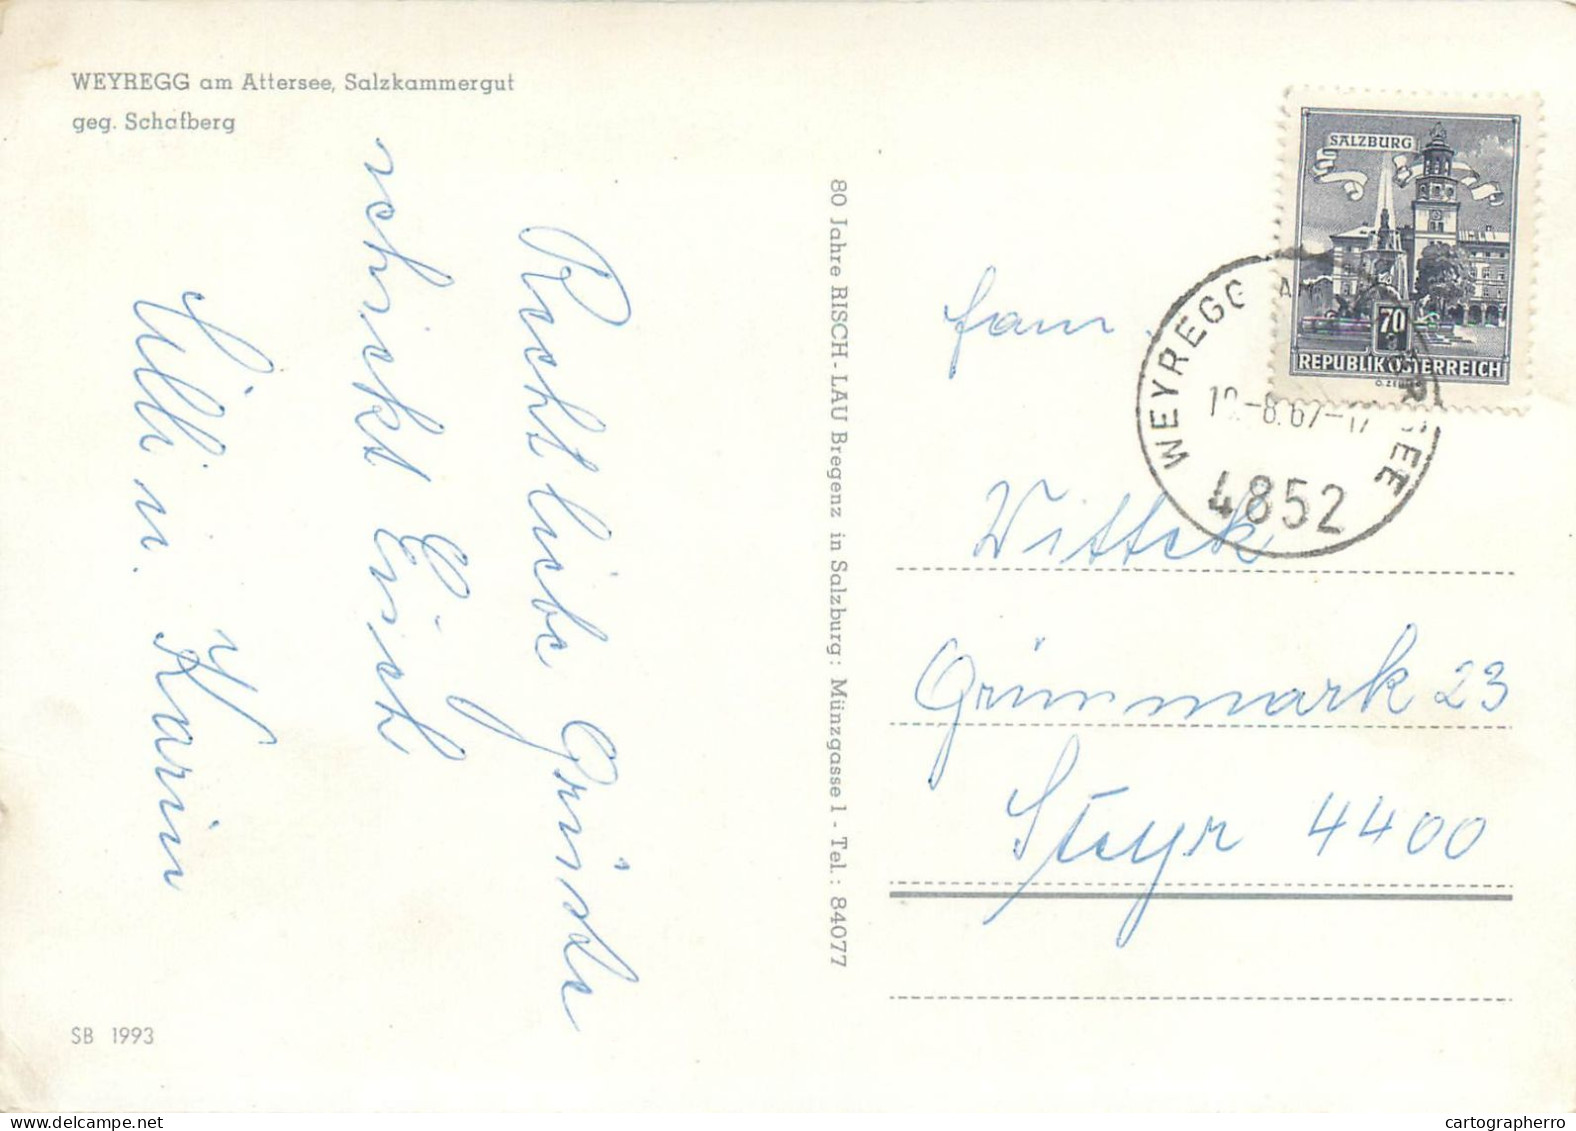 WEYREGG am Attersee, Salzkammergut
geg. Schafberg
Recht liebe Grüsse
schickt Euch
Willi u. Karin
SB 1993
80 Jahre RISCH-LAU Bregenz in Salzburg: Münzgasse 1 - Tel.: 84077
SALZBURG
70
REPUBLIK ÖSTERREICH
WEYREGG AM ATTERSEE
-8.67-17
4852
Fam.
Wittek
Grünmark 23
Steyr 4400
cartographerro